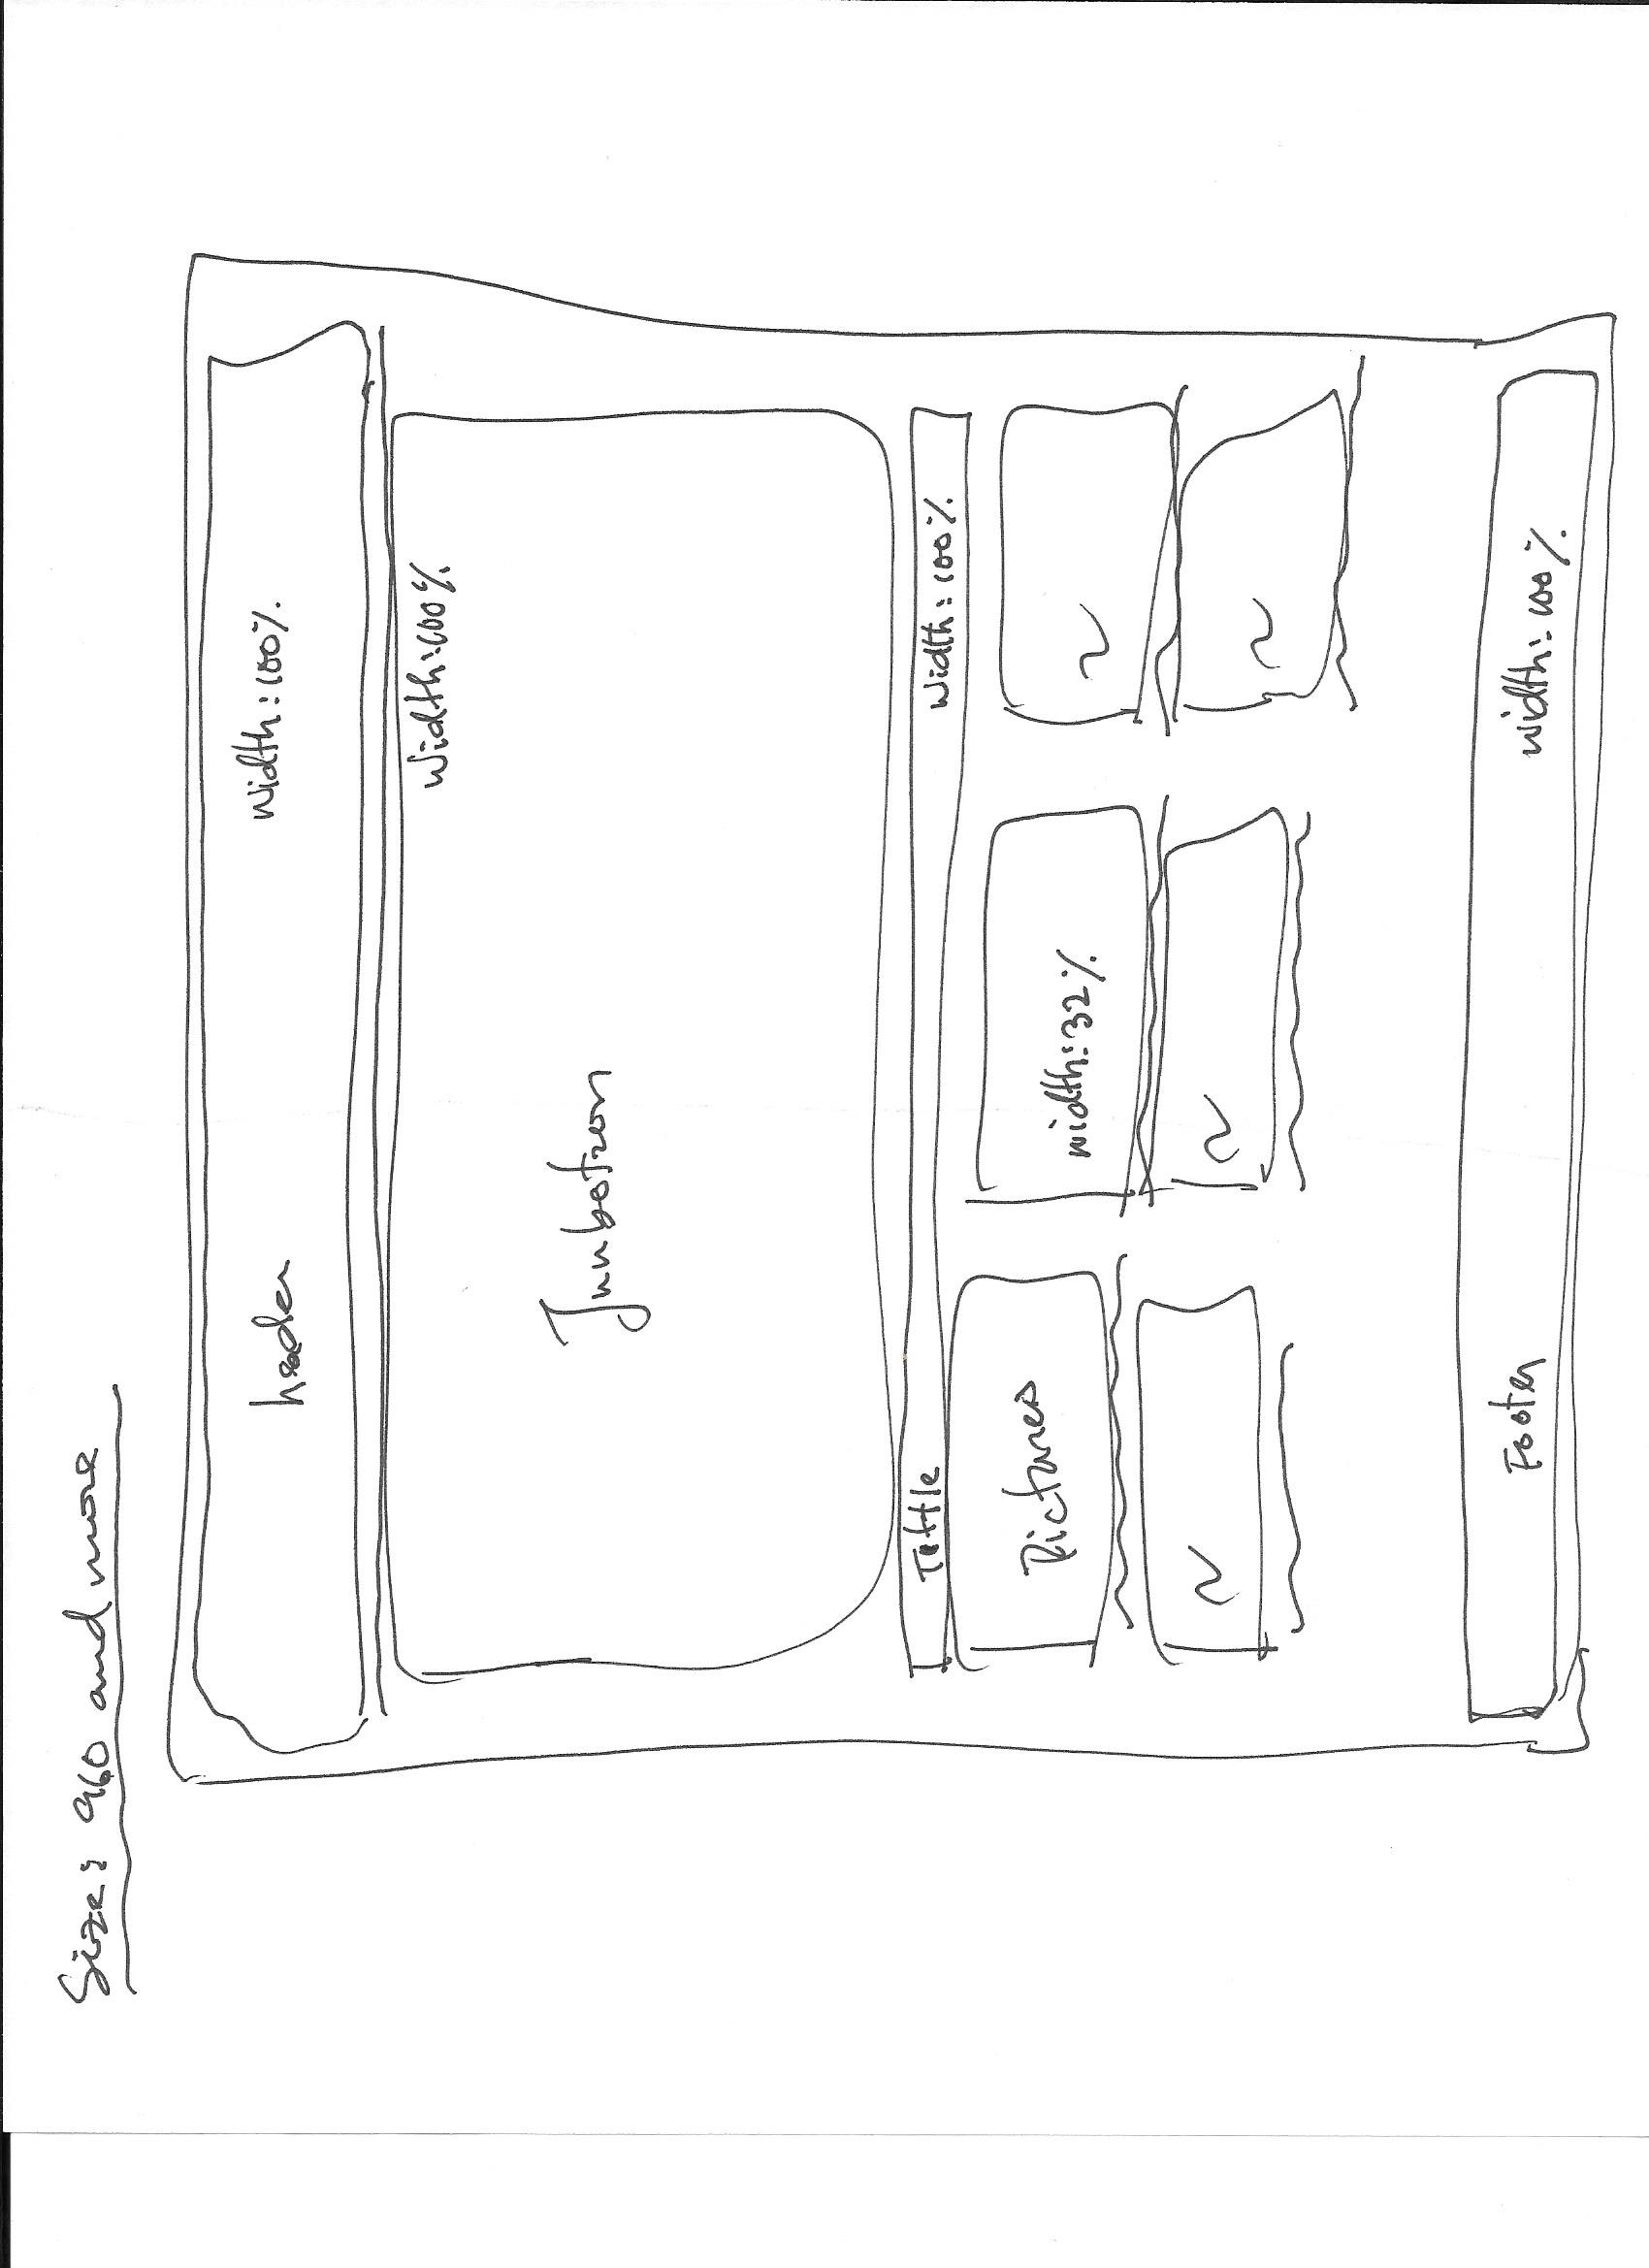 Size: 960 and more
header
Width: 100%
Width: 100%
Jumbotron
Tittle
Width: 100%
Pictures
width: 32%
~
~
~
~
Footer
width: 100%